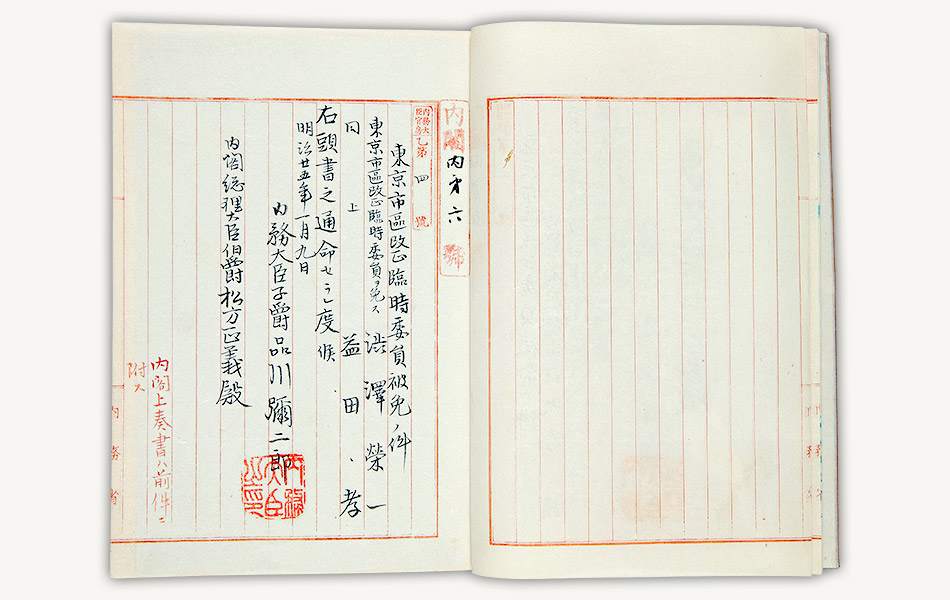 内閣
内第六號
内務大臣官房
乙第四號
東京市區改正臨時委員被免ノ件
東京市區改正臨時委員ヲ免ス 渋澤榮一
同上 益田孝
右頭書之通命セラレ度候
明治廿五年一月九日
内務大臣子爵品川彌二郎
内務大臣之印
内閣総理大臣伯爵松方正義殿
内閣上奏書ハ前件ニ
附ス
内務省